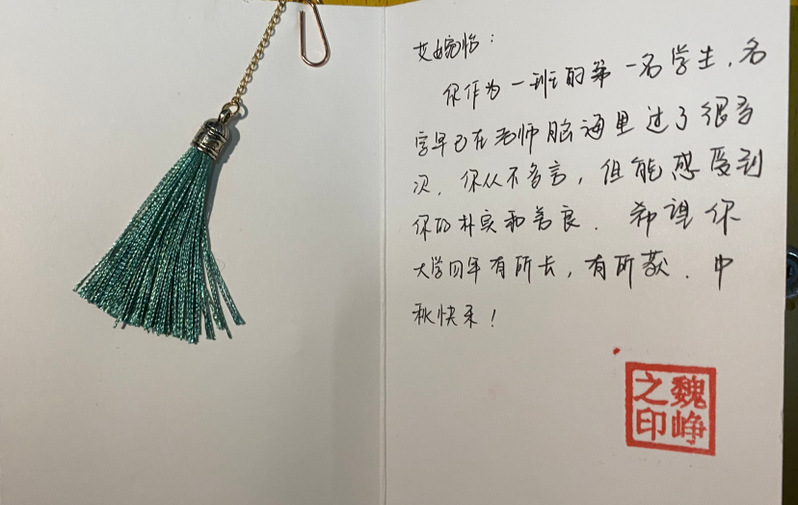 艾婉怡：
你作为一班的第一名学生，名
字早已在老师脑海里过了很多
次，你从不多言，但能感受到
你的朴实和善良．希望你
大学四年有所去，有所获．中
秋快乐！
魏峥
之印